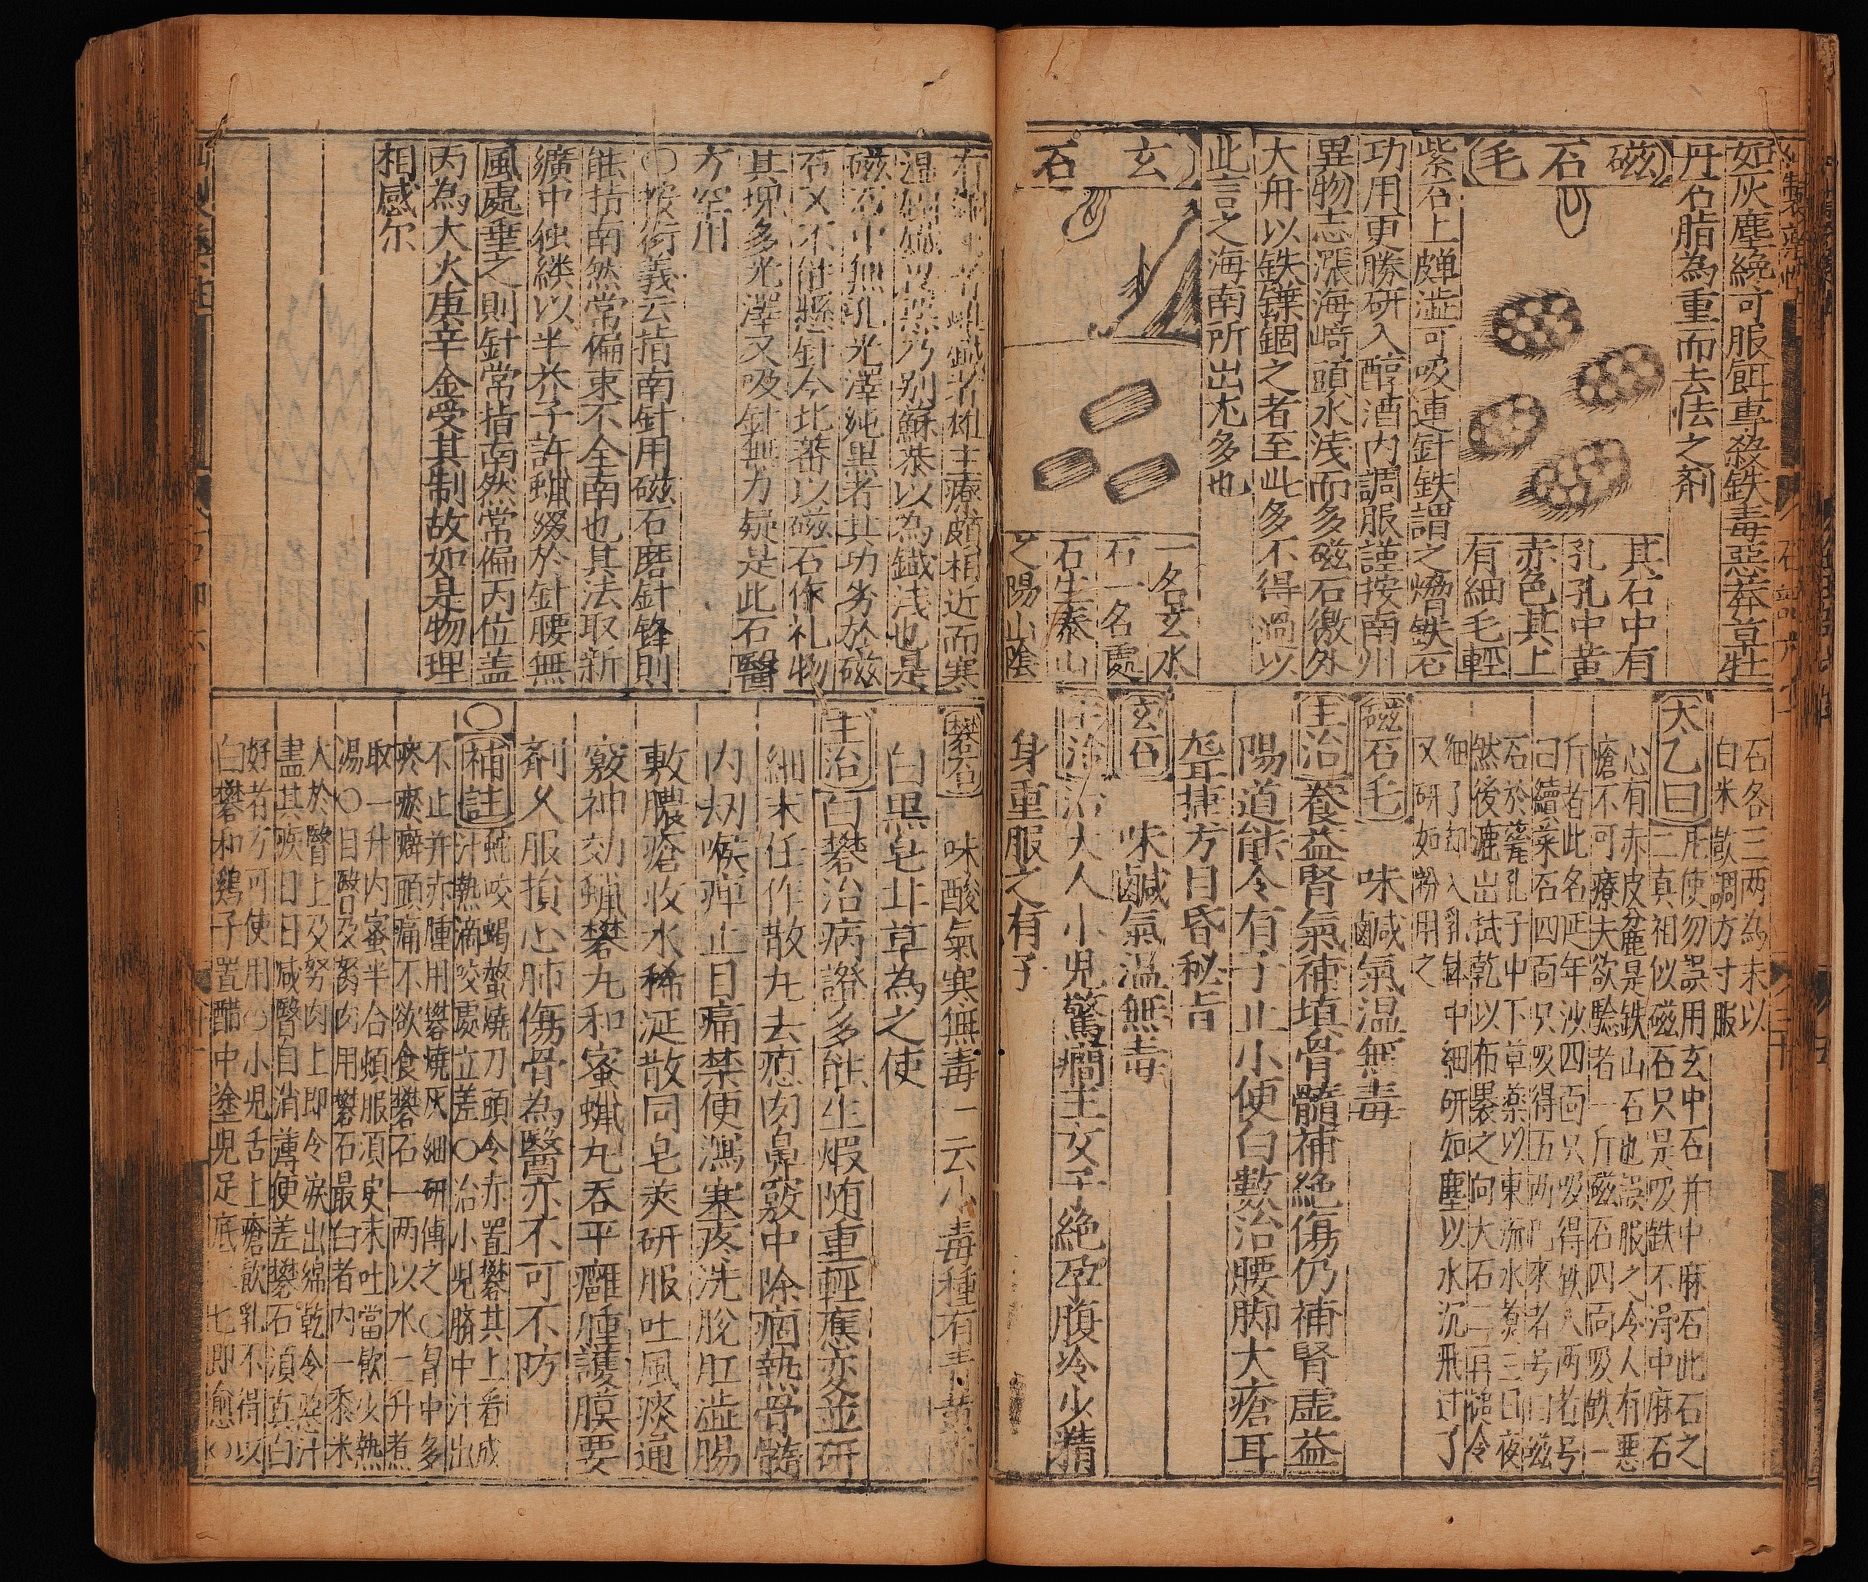 如灰塵纔可服餌專殺鉄毒惡莽草牡
丹石脂為重而去怯之剤
磁石毛
其石中有
孔孔中黄
赤色其上
有細毛輕
紫石上頗澁可吸連針鉄謂之熁鉄石
功用更勝研入醇酒内調服謹按南州
異物志漲海崎頭水浅而多磁石徼外
大舟以鉄鏷錮之者至此多不得過以
此言之海南所出尤多也
玄石
一名玄水
石一名處
石生泰山
之陽山陰
石各三两為末以
白米飲調方寸服
太乙曰
凡使勿誤用玄中石并中麻石此石之
二真相似磁石只是吸鉄不得中麻石
心有赤皮麄是鉄山石也誤服之令人有惡
瘡不可療夫欲驗者一斤磁石四面吸鉄一
斤者此名延年沙四面只吸得鉄八两者号
曰續菜石四面只吸得五两已來者号曰磁
石於薧孔子中下草薬以東流水煑三日夜
然後漉出拭乾以布裹之向大石上再搥令
細了却入乳鉢中細研如塵以水沉飛过了
又研如粉用之
磁石毛 味鹹氣温無毒
主治 養益腎氣補填骨髓補絶傷仍補腎虚益
陽道能令有子止小便白數治腰脚大瘡耳
聾捷方目昏秘旨
玄石 味鹹氣温無毒
主治 治大人小兒驚癇主女子絶孕腹冷少精
身重服之有子
温
磁石中無孔光澤純黒者其功劣於磁
石又不能懸針今北蕃以磁石作礼物
其塊多光澤又吸針無力疑是此石醫
方罕用
〇按衍義云指南針用磁石磨針鋒則
能指南然常偏東不全南也其法取新
纊中独縷以半芥子許蝋綴於針腰無
風處垂之則針常指南然常偏丙位盖
丙為大火庚辛金受其制故如是物理
相感尔
礬石 味酸氣寒無毒一云小毒種有青黄
白黒皂北草為之使
主治 白礬治病證多能生煆随重輕應変並研
細末任作散丸去瘜肉鼻竅中除痼熱骨髓
内刼喉痺止目痛禁便瀉寒疼洗脫肛澁腸
敷膿瘡收水稀涎散同皂莢研服吐風痰通
竅神効蝋礬丸和蜜蝋丸吞平癰腫護膜要
剤久服損心肺傷骨為醫亦不可不防
〇補註 蛇咬蝎螫燒刀頭令赤置礬其上看成
汁熱滴咬處立差〇治小兒臍中汁出
不止并赤腫用礬燒灰細研傳之〇胷中多
痰癥癖頭痛不欲食礬石一两以水二升煮
取一升内蜜半合頓服湏臾未吐當飲少熱
湯〇目瞖及胬肉用礬石最白者内一黍米
大於瞖上及努肉上即令淚出綿乾令惡汁
盡其疾日日减瞖自消薄便差礬石湏真白
好者方可使用〇小兒舌上瘡飲乳不得以
白礬和鷄子置醋中塗兒足底 七即愈〇